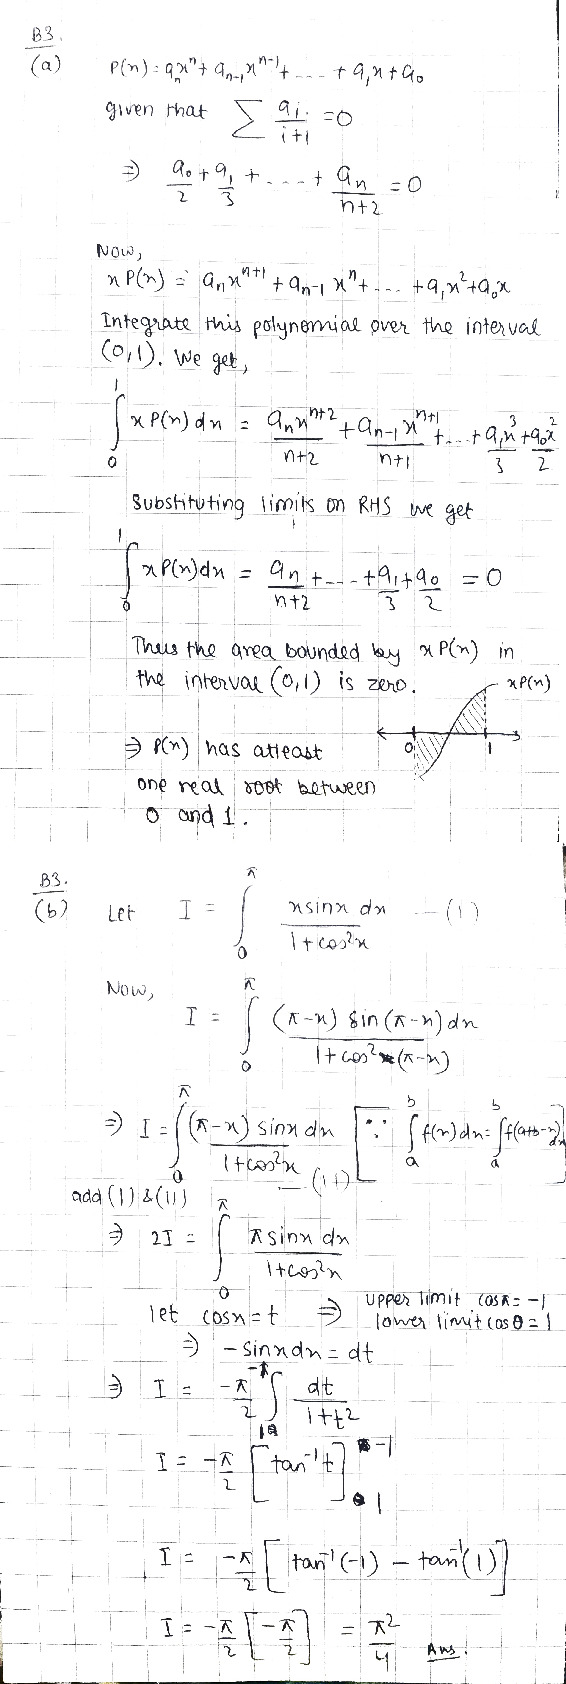 B3.
(a) P(x) = aₙxⁿ + aₙ₋₁xⁿ⁻¹ + ... + a₁x + a₀
given that ∑ aᵢ/(i+1) = 0
⇒ a₀/2 + a₁/3 + .... + aₙ/(n+2) = 0
Now,
x P(x) = aₙxⁿ⁺¹ + aₙ₋₁xⁿ + ... + a₁x² + a₀x
Integrate this polynomial over the interval
(0,1). We get,
∫₀¹ x P(x) dx = aₙxⁿ⁺²/(n+2) + aₙ₋₁xⁿ⁺¹/(n+1) + ... + a₁x³/3 + a₀x²/2
Substituting limits on RHS we get
∫₀¹ x P(x) dx = aₙ/(n+2) + ... + a₁/3 + a₀/2 = 0
Thus the area bounded by x P(x) in
the interval (0,1) is zero.
xP(x)
0 1
⇒ P(x) has atleast
one real root between
0 and 1.
B3.
(b) Let I = ∫₀^π x sinx dx/(1+cos²x) — (1)
Now,
I = ∫₀^π (π-x) sin(π-x) dx/(1+cos²(π-x))
⇒ I = ∫₀^π (π-x) sinx dx/(1+cos²x) — (11) [∵ ∫ₐᵇ f(x) dx = ∫ₐᵇ f(a+b-x) dx]
add (1) & (11)
⇒ 2I = ∫₀^π π sinx dx/(1+cos²x)
let cosx = t ⇒ upper limit cosπ = -1
lower limit cos0 = 1
⇒ -sinx dx = dt
⇒ I = -π/2 ∫₁⁻¹ dt/(1+t²)
I = -π/2 [tan⁻¹t]₁⁻¹
I = -π/2 [tan⁻¹(-1) - tan⁻¹(1)]
I = -π/2 [-π/2] = π²/4 Ans.